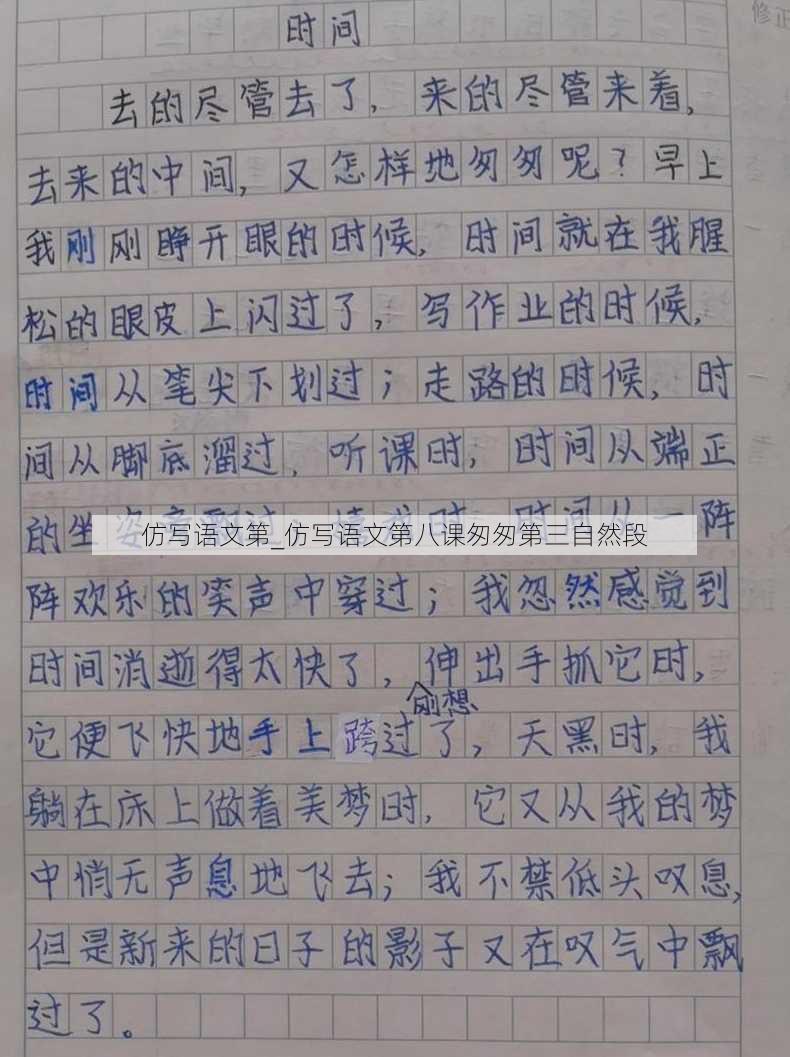 修正
时间
去的尽管去了，来的尽管来着，
去来的中间，又怎样地匆匆呢？早上
我刚刚睁开眼的时候，时间就在我腥
松的眼皮上闪过了，写作业的时候，
时间从笔尖下划过；走路的时候，时
间从脚底溜过，听课时，时间从端正
的坐
阵
仿写语文第_仿写语文第八课匆匆第三自然段
阵欢乐的笑声中穿过；我忽然感觉到
时间消逝得太快了，伸出手抓它时，
刚想
它便飞快地手上跨过了，天黑时，我
躺在床上做着美梦时，它又从我的梦
中悄无声息地飞去；我不禁低头叹息，
但是新来的日子的影子又在叹气中飘
过了。